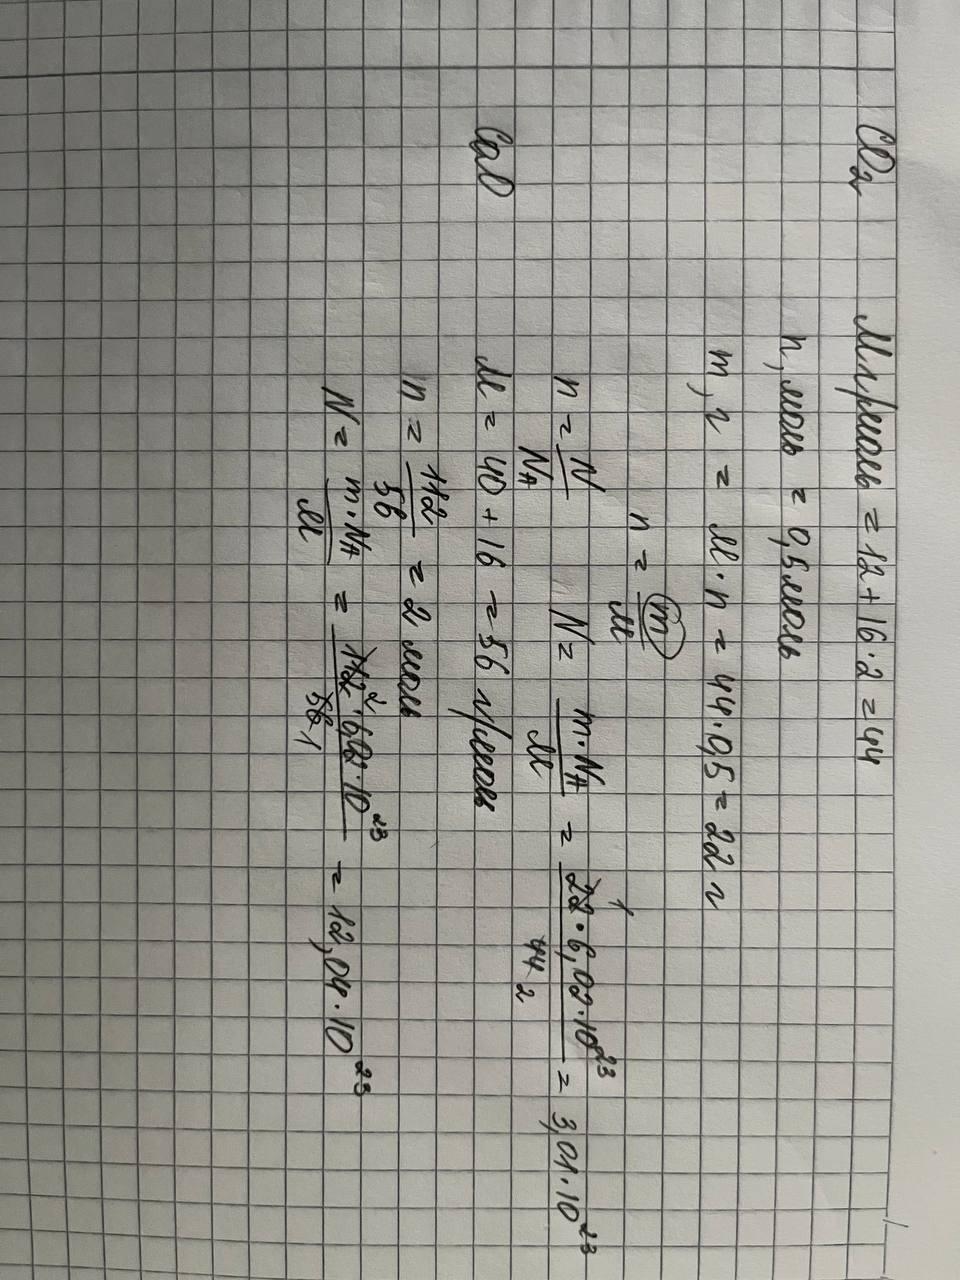 CO₂ M г/моль = 12 + 16 · 2 = 44
n, моль = 0,5 моль
m, г = M · n = 44 · 0,5 = 22 г
n = m/M
n = N/N_A N = m · N_A/M = 22 · 6,02 · 10²³/44 = 3,01 · 10²³
1 2
CaO M = 40 + 16 = 56 г/моль
n = 112/56 = 2 моль
N = m · N_A/M = 112 · 6,02 · 10²³/56 = 12,04 · 10²³
2 1